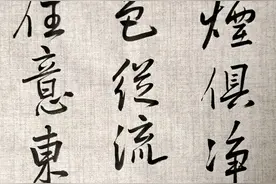 煙俱净
色從流
任意東